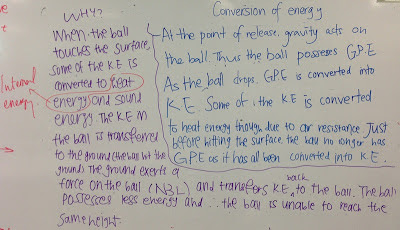 WHY?
When the ball
touches the surface,
some of the KE is
converted to heat
energy and sound
energy. The KE in
the ball is transferred
to the ground (the ball hit the
ground). The ground exerts a
force on the ball (N3L) and transfers KE back to the ball. The ball
possesses less energy and ∴ the ball is unable to reach the
same height.
Internal
energy.
Conversion of energy
At the point of release, gravity acts on
the ball. Thus the ball possesses G.P.E
As the ball drops, GPE is converted into
KE. Some of the KE is converted
to heat energy though due to air resistance. Just
before hitting the surface, the ball no longer has
GPE as it has all been converted into KE.